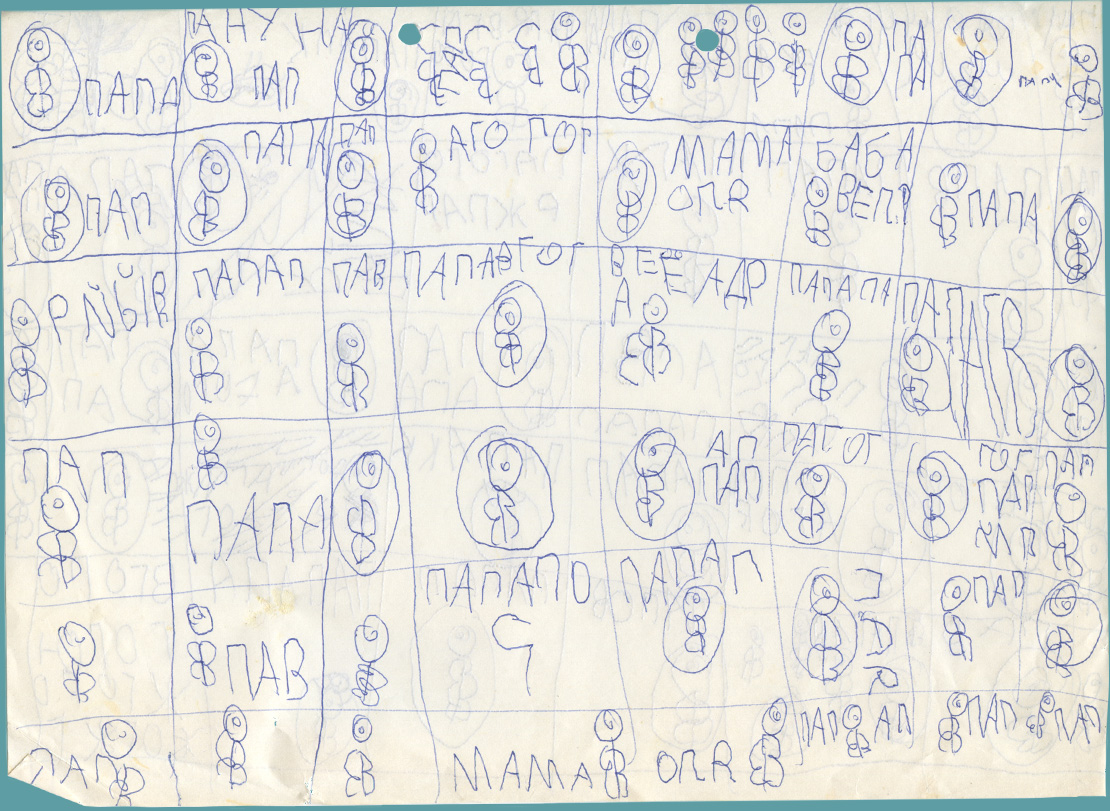 ПАНУ НА
ПАПА
ПАП
ПА
ПА
ПАПА
ПАПА
ПАП
АГО ГОГ
МАМА
ОЛЯ
БАБА
ВЕЛ
ПАП
ПАПА
РЙЫВ
ПАПАП
ПАВ
ПАПАВГОГ
ВЕЕ АДР
А
ПАПАПА
ПА
ПАП
ПАПА
АП
ПАП
ПАГОГ
ГОГ
ПАП
ПАПАПО
ПАПАП
ПАВ
ПАП
МАМА
ОЛЯ
ПАП
АП
ПАП
ПАП